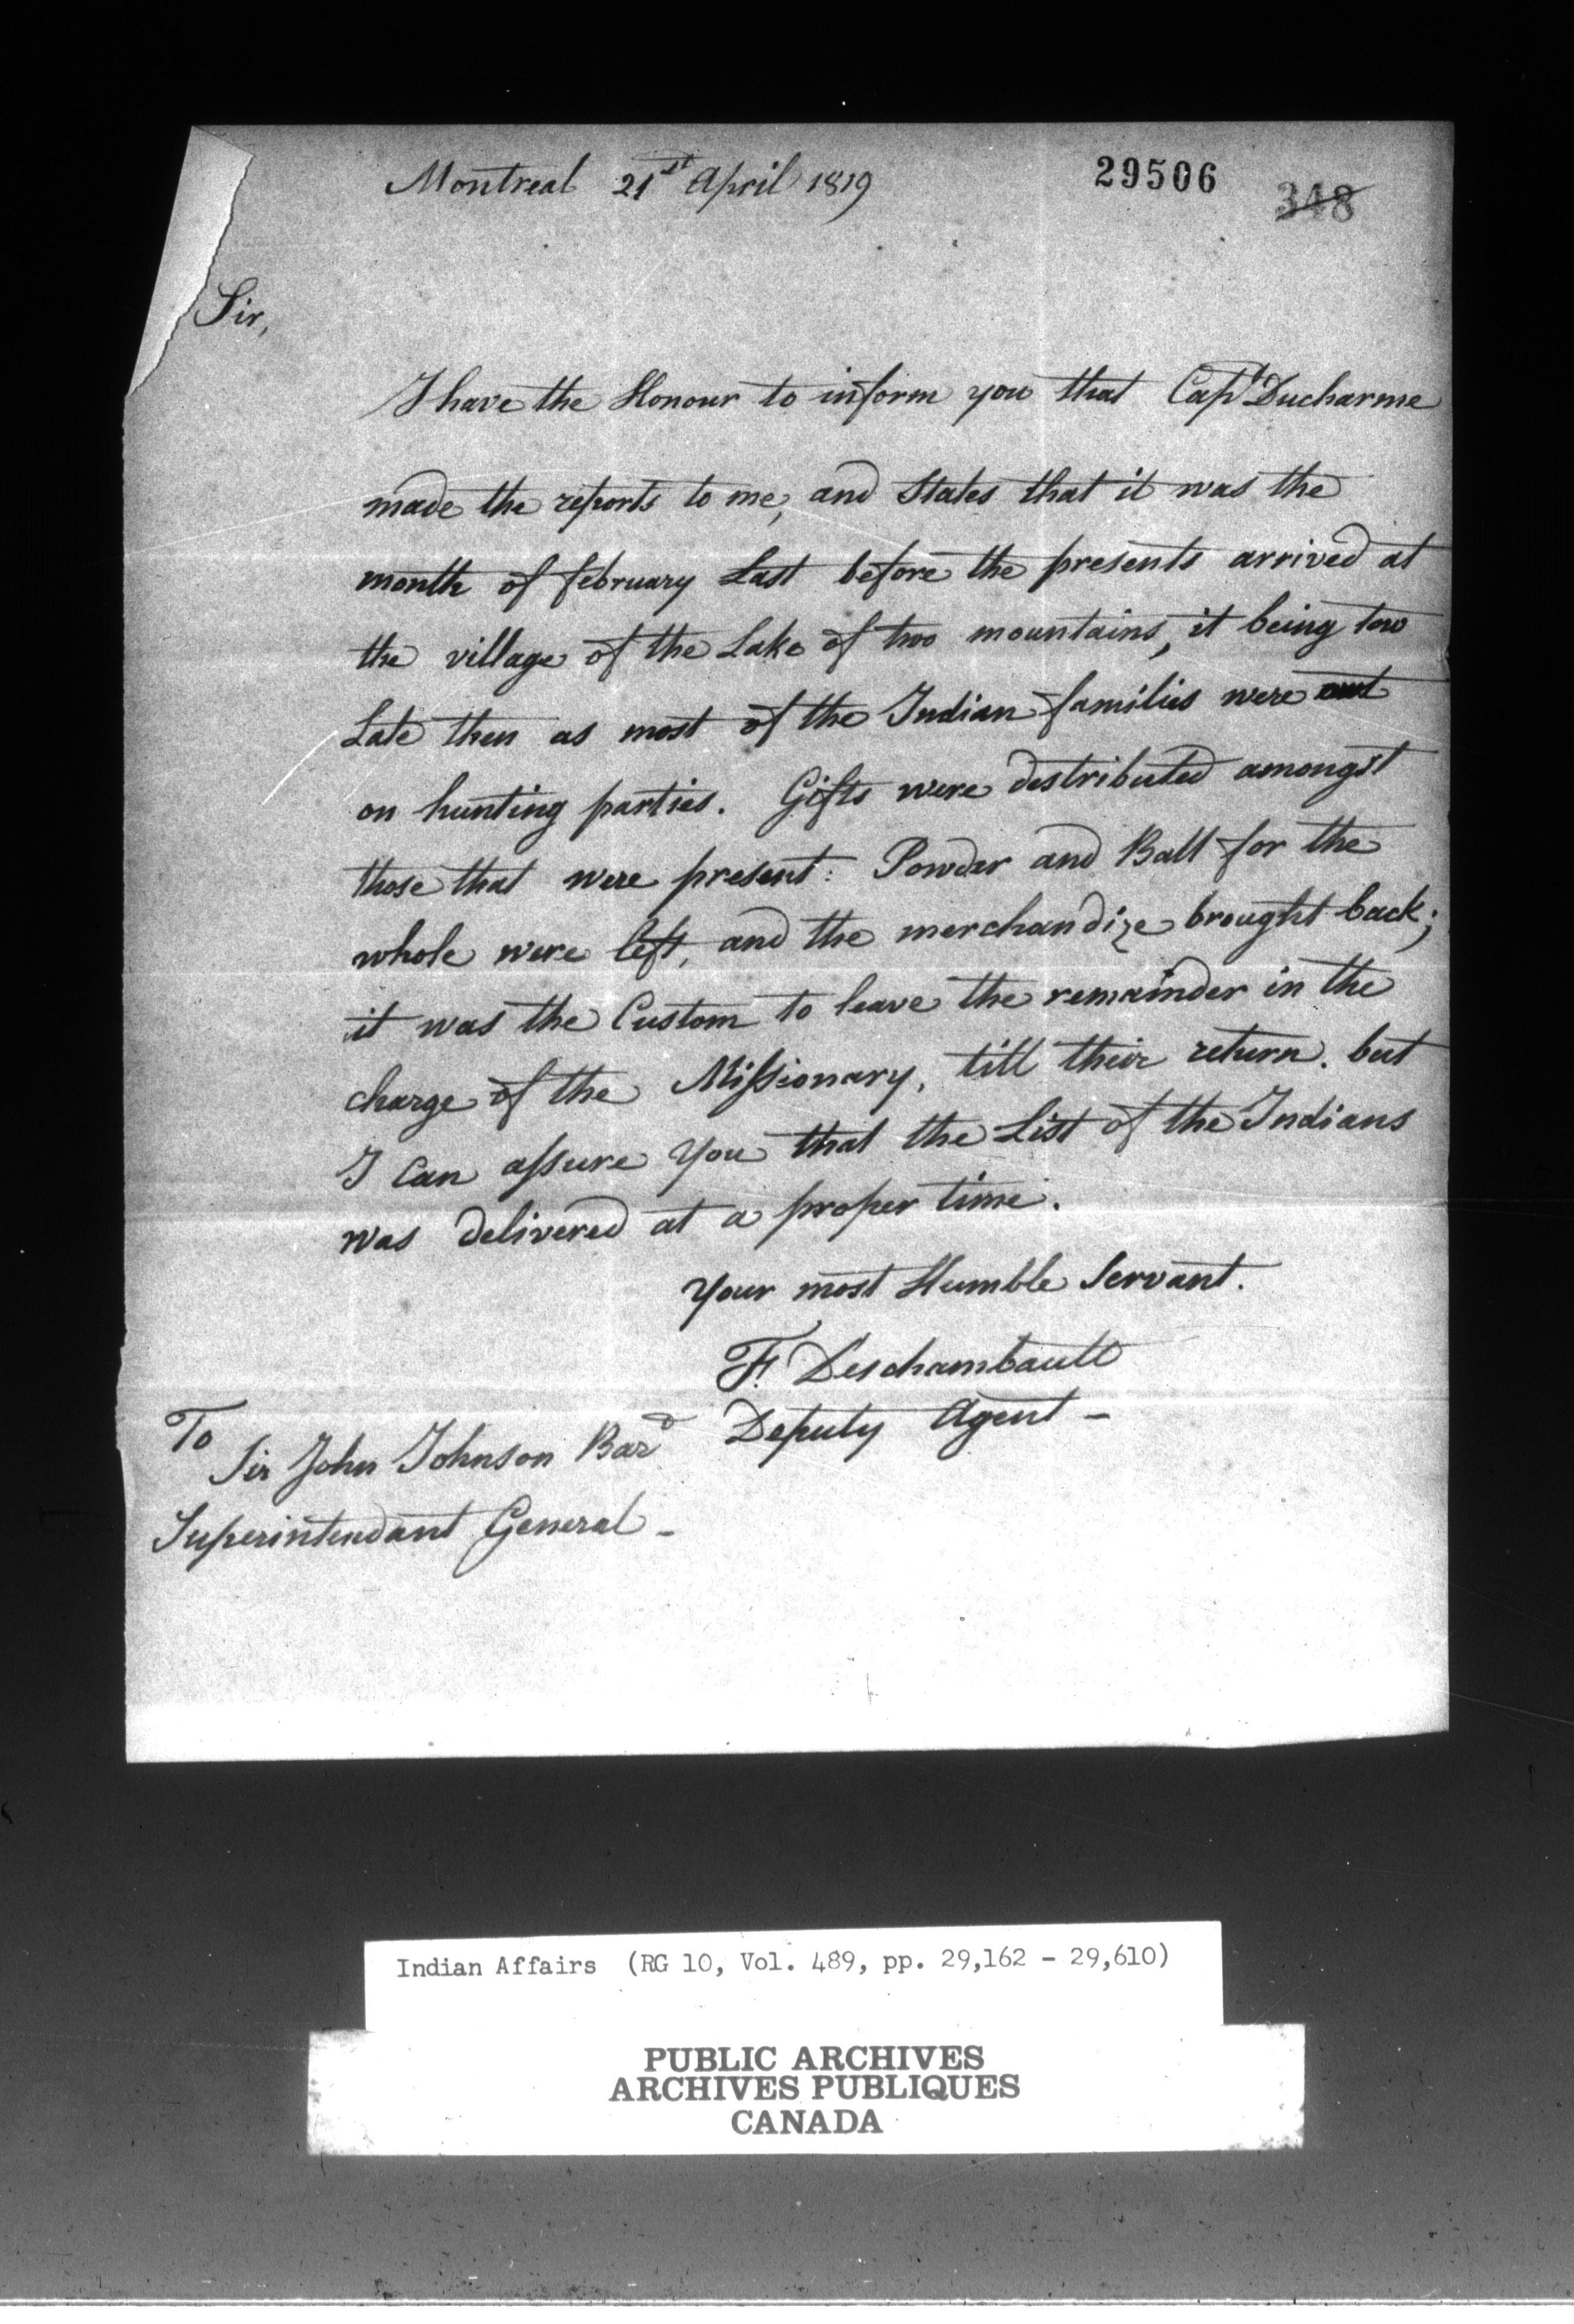 Montreal 21st April 1819
29506
348
Sir,
I have the Honour to inform you that Capt Ducharme
made the reports to me, and States that it was the
month of february Last before the presents arrived at
the village of the Lake of two mountains, it being too
Late then as most of the Indian families were out
on hunting parties. Gifts were destributed amongst
those that were present: Powder and Ball for the
whole were left, and the merchandize brought back;
it was the Custom to leave the remainder in the
charge of the Missionary, till their return. but
I Can assure You that the List of the Indians
was delivered at a proper time.
Your most Humble Servant.
F. Deschambault
Deputy Agent —
To
Sir John Johnson Bar
Superintendant General —
Indian Affairs (RG 10, Vol. 489, pp. 29,162 - 29,610)
PUBLIC ARCHIVES
ARCHIVES PUBLIQUES
CANADA